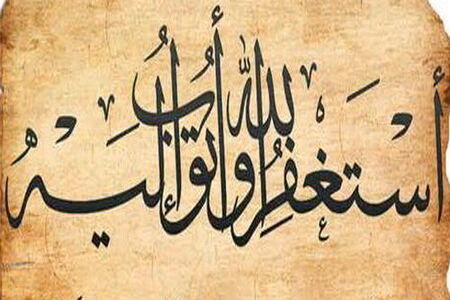 أَسْتَغْفِرُ الله وأتُوبُ إِلَيْهِ